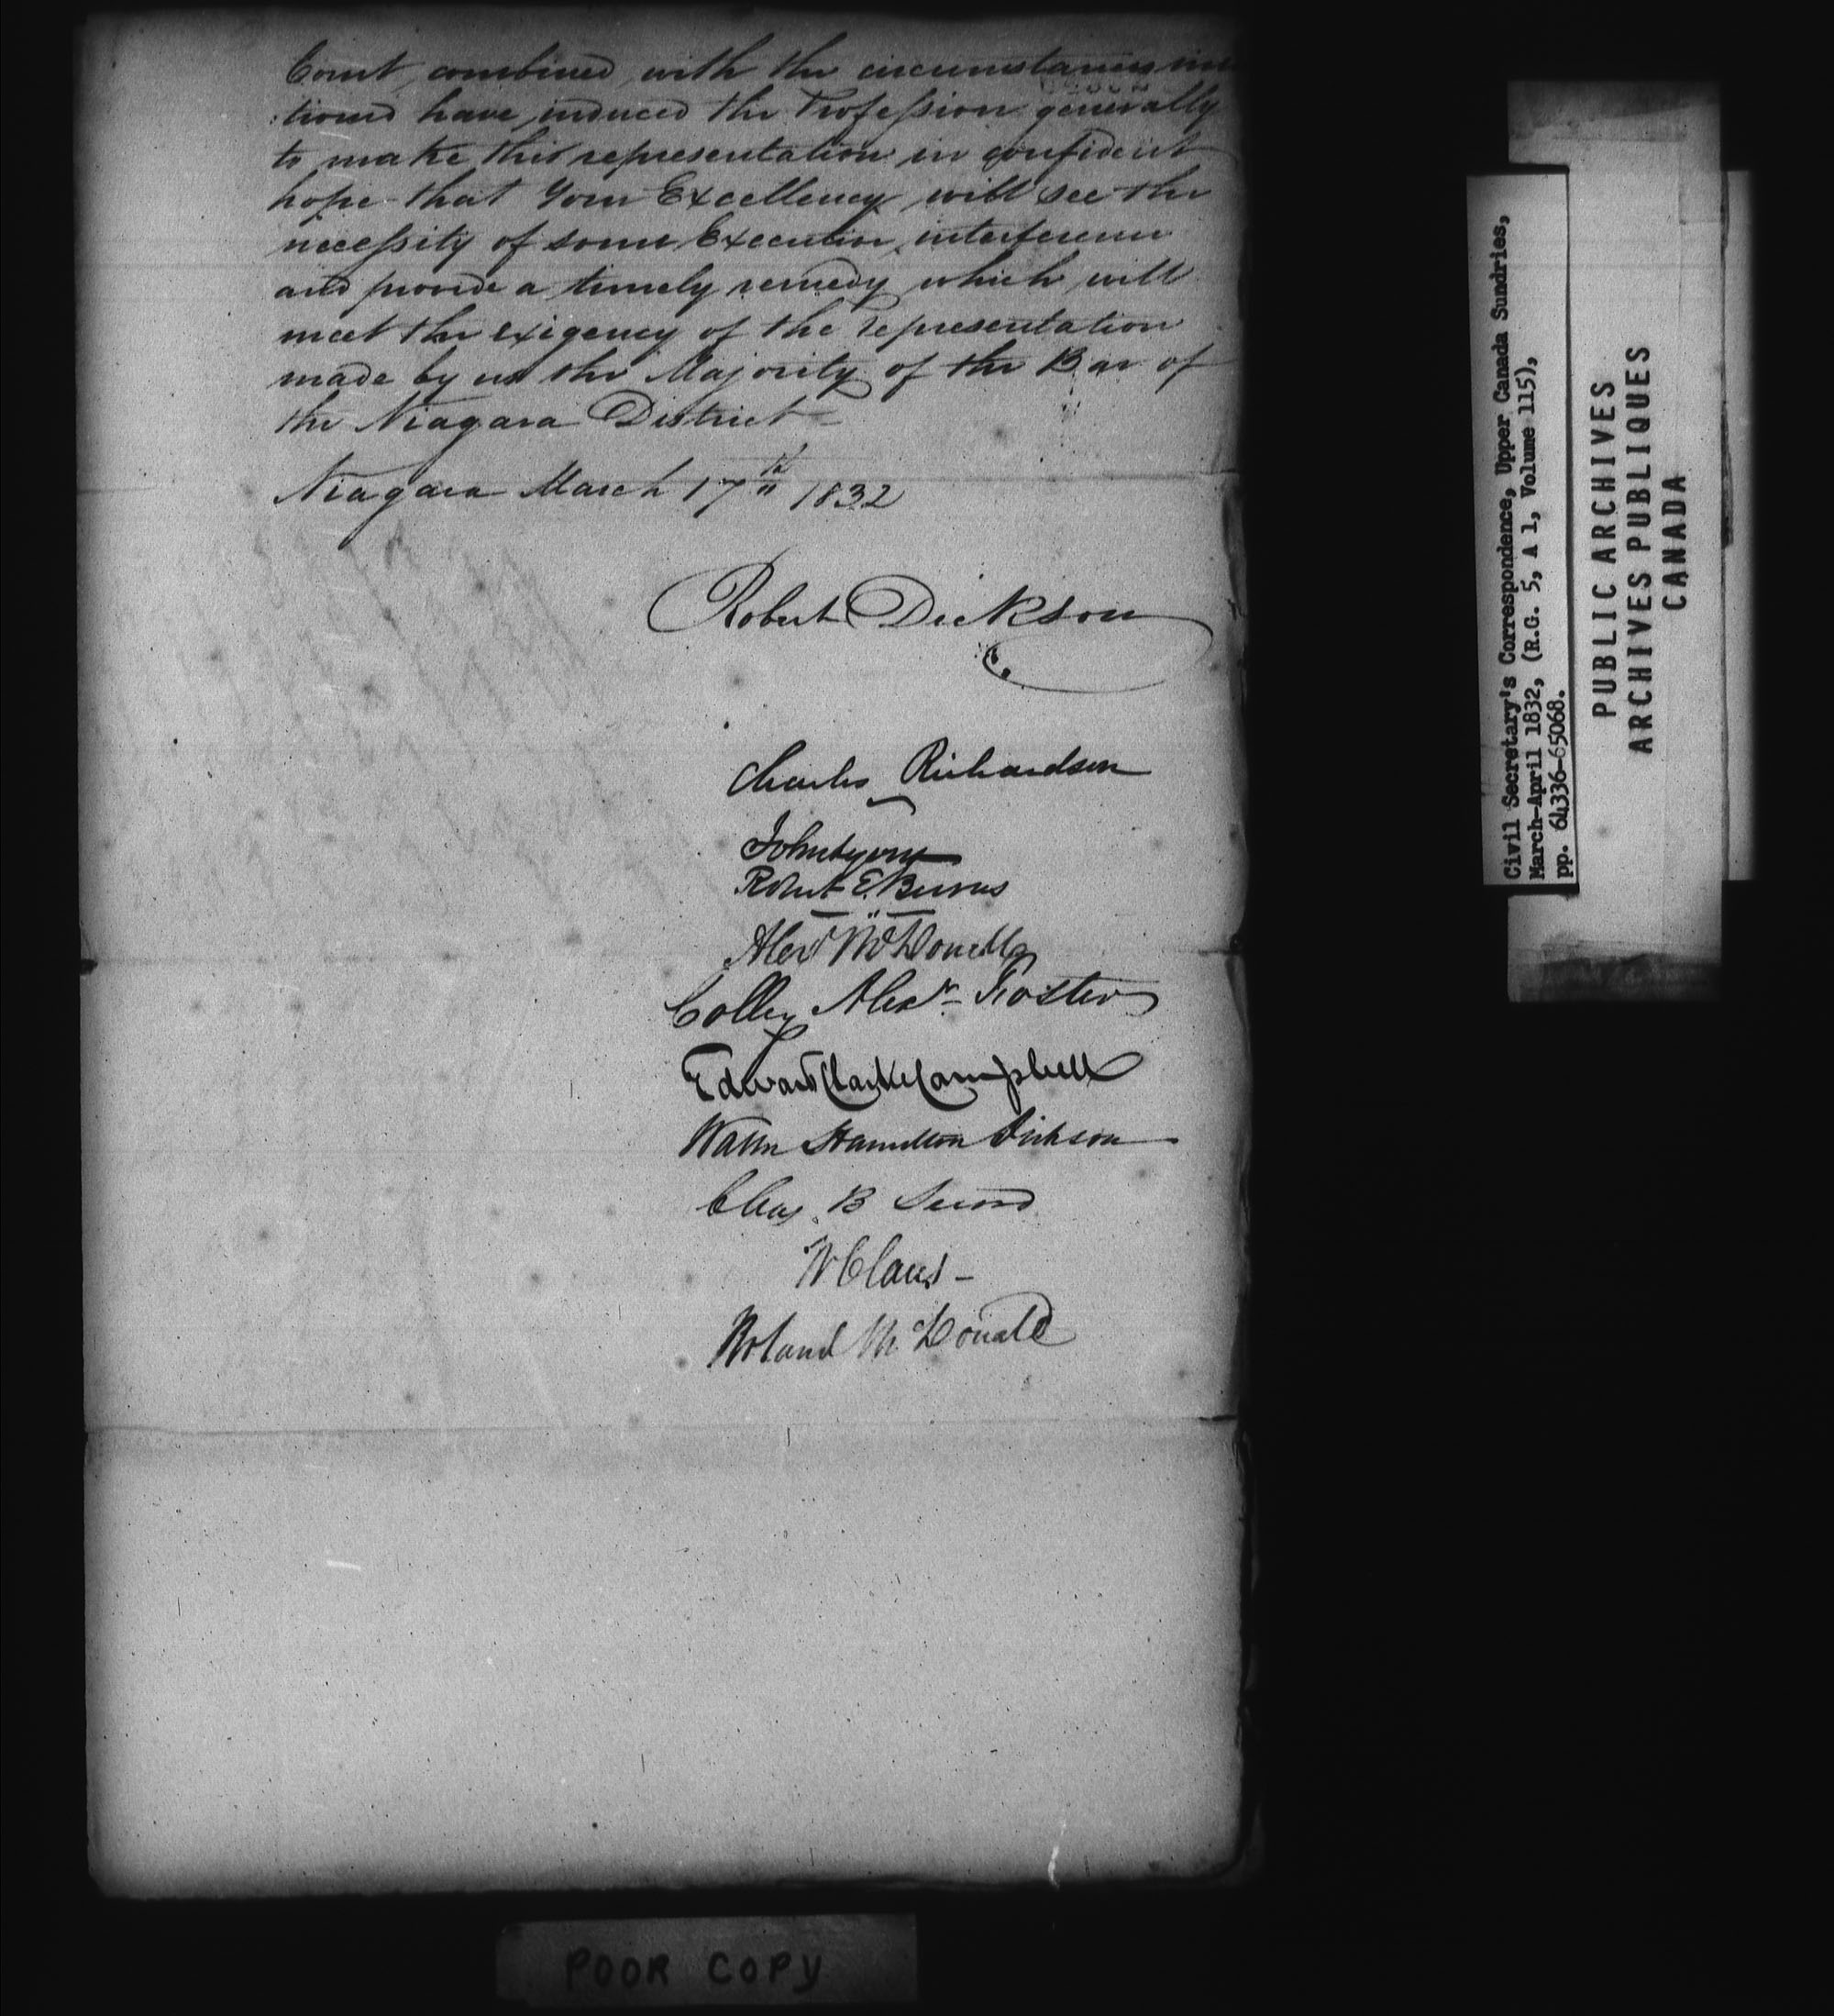 Court, combined with the circumstances men
:tioned have, induced the Profession generally
to make this representation in confident
hope that Your Excellency will see the
necessity of some Executive interference
and provide a timely remedy which will
meet the exigency of the representation
made by us the Majority of the Bar of
the Niagara District—
Niagara March 17th 1832
Robert Dickson
Charles Richardson
John Lyons
Robert E. Burns
Alexr McDonell
Colley Alexr Foster
Edward Clarke Campbell
Walter Hamilton Dickson
Chas. B Secord
W Claus —
Roland McDonald
POOR COPY
Civil Secretary's Correspondence, Upper Canada Sundries,
March-April 1832, (R.G. 5, A 1, Volume 115),
pp. 64336-65068.
PUBLIC ARCHIVES
ARCHIVES PUBLIQUES
CANADA